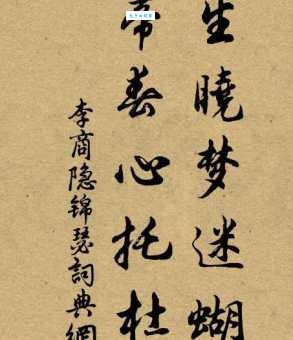 生曉梦迷蝴
帝春心托杜
李商隐锦瑟詞典網